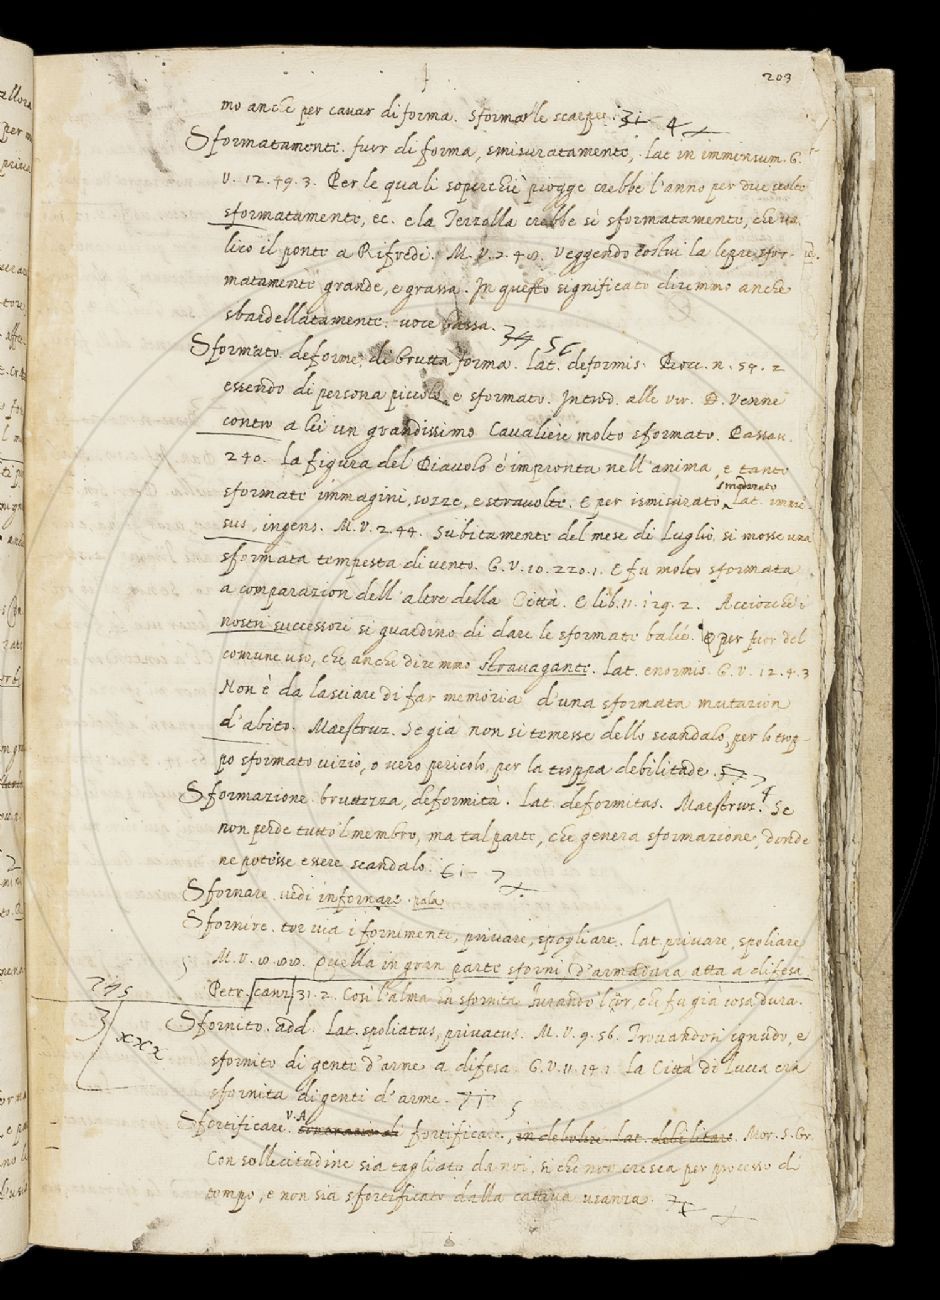 203
mo anche per cavar di forma. sformar le scarpe. 31 4
Sformatamente. fuor di forma, smisuratamente, lat. in immensum. G.
V. 12. 49. 3. Per le quali soperchie piogge crebbe l'anno per due volte
sformatamente, ec. e la Terzolla crebbe sì sformatamente, che va-
licò il ponte a Rifredi. M. V. 2. Veggendo costui la lepre sfor-
matamente grande, e grassa. In questo significato diremmo anche
sbardellatamente. voce bassa. 74 56
Sformato. deforme, di brutta forma. Lat. deformis. Bocc. n. 54. 2
essendo di persona piccolo, e sformato. Introd. alle vir. D. Venne
contro a lei un grandissimo Cavaliere molto sformato. Passav.
240. la figura del Diavolo è impronta nell'anima, e tante
sformate immagini, sozze, e stravolte. E per ismisurato,
Lat. immen-
sus, ingens. M. V. 2. 44. Subitamente del mese di Luglio, si mosse una
sformata tempesta di vento. G. V. 10. 220. 1. E fu molto sformata
a comparazion dell'altre della Città. E lib. 11. 129. 2. Acciocche i
nostri successori si guardino di dare le sformate balìe. E per fuor del
comune uso, che anche diremmo stravagante. Lat. enormis. G. V. 12. 4. 3
Non è da lasciare di far memoria d'una sformata mutazion
d'abito. Maestruz. Se già non si temesse dello scandalo, per lo trop-
po sformato vizio, o vero pericolo, per la troppa debilitade. 57 4
Sformazione. bruttezza, deformità. Lat. deformitas. Maestruz. Se
non perde tutto'l membro, ma tal parte, che genera sformazione, donde
ne potesse essere scandalo. 61 7
Sfornare. vedi infornare. pala
Sfornire. tor via i fornimenti, privare, spogliare. lat. privare, spoliare
M. V. Quella in gran parte sfornì d'armadura atta a difesa
Petr. canz. 31. 2. Così l'alma ha sfornita Furando'l cor, che fu già cosa dura.
245
3 xx2
Sfornito. add. Lat. spoliatus, privatus. M. V. 9. 56. Trovandosi ignudo, e
sfornito di gente d'arme a difesa. G. V. 11. La Città di Lucca era
sfornita di gente d'arme. 71 5
Sfortificare. V. A. fortificare, in debolire lat. debilitare. Mor. S. Gr.
Con sollecitudine sia tagliato da noi, si che non cresca per processo di
tempo, e non sia sfortificato dalla cattiva usanza.